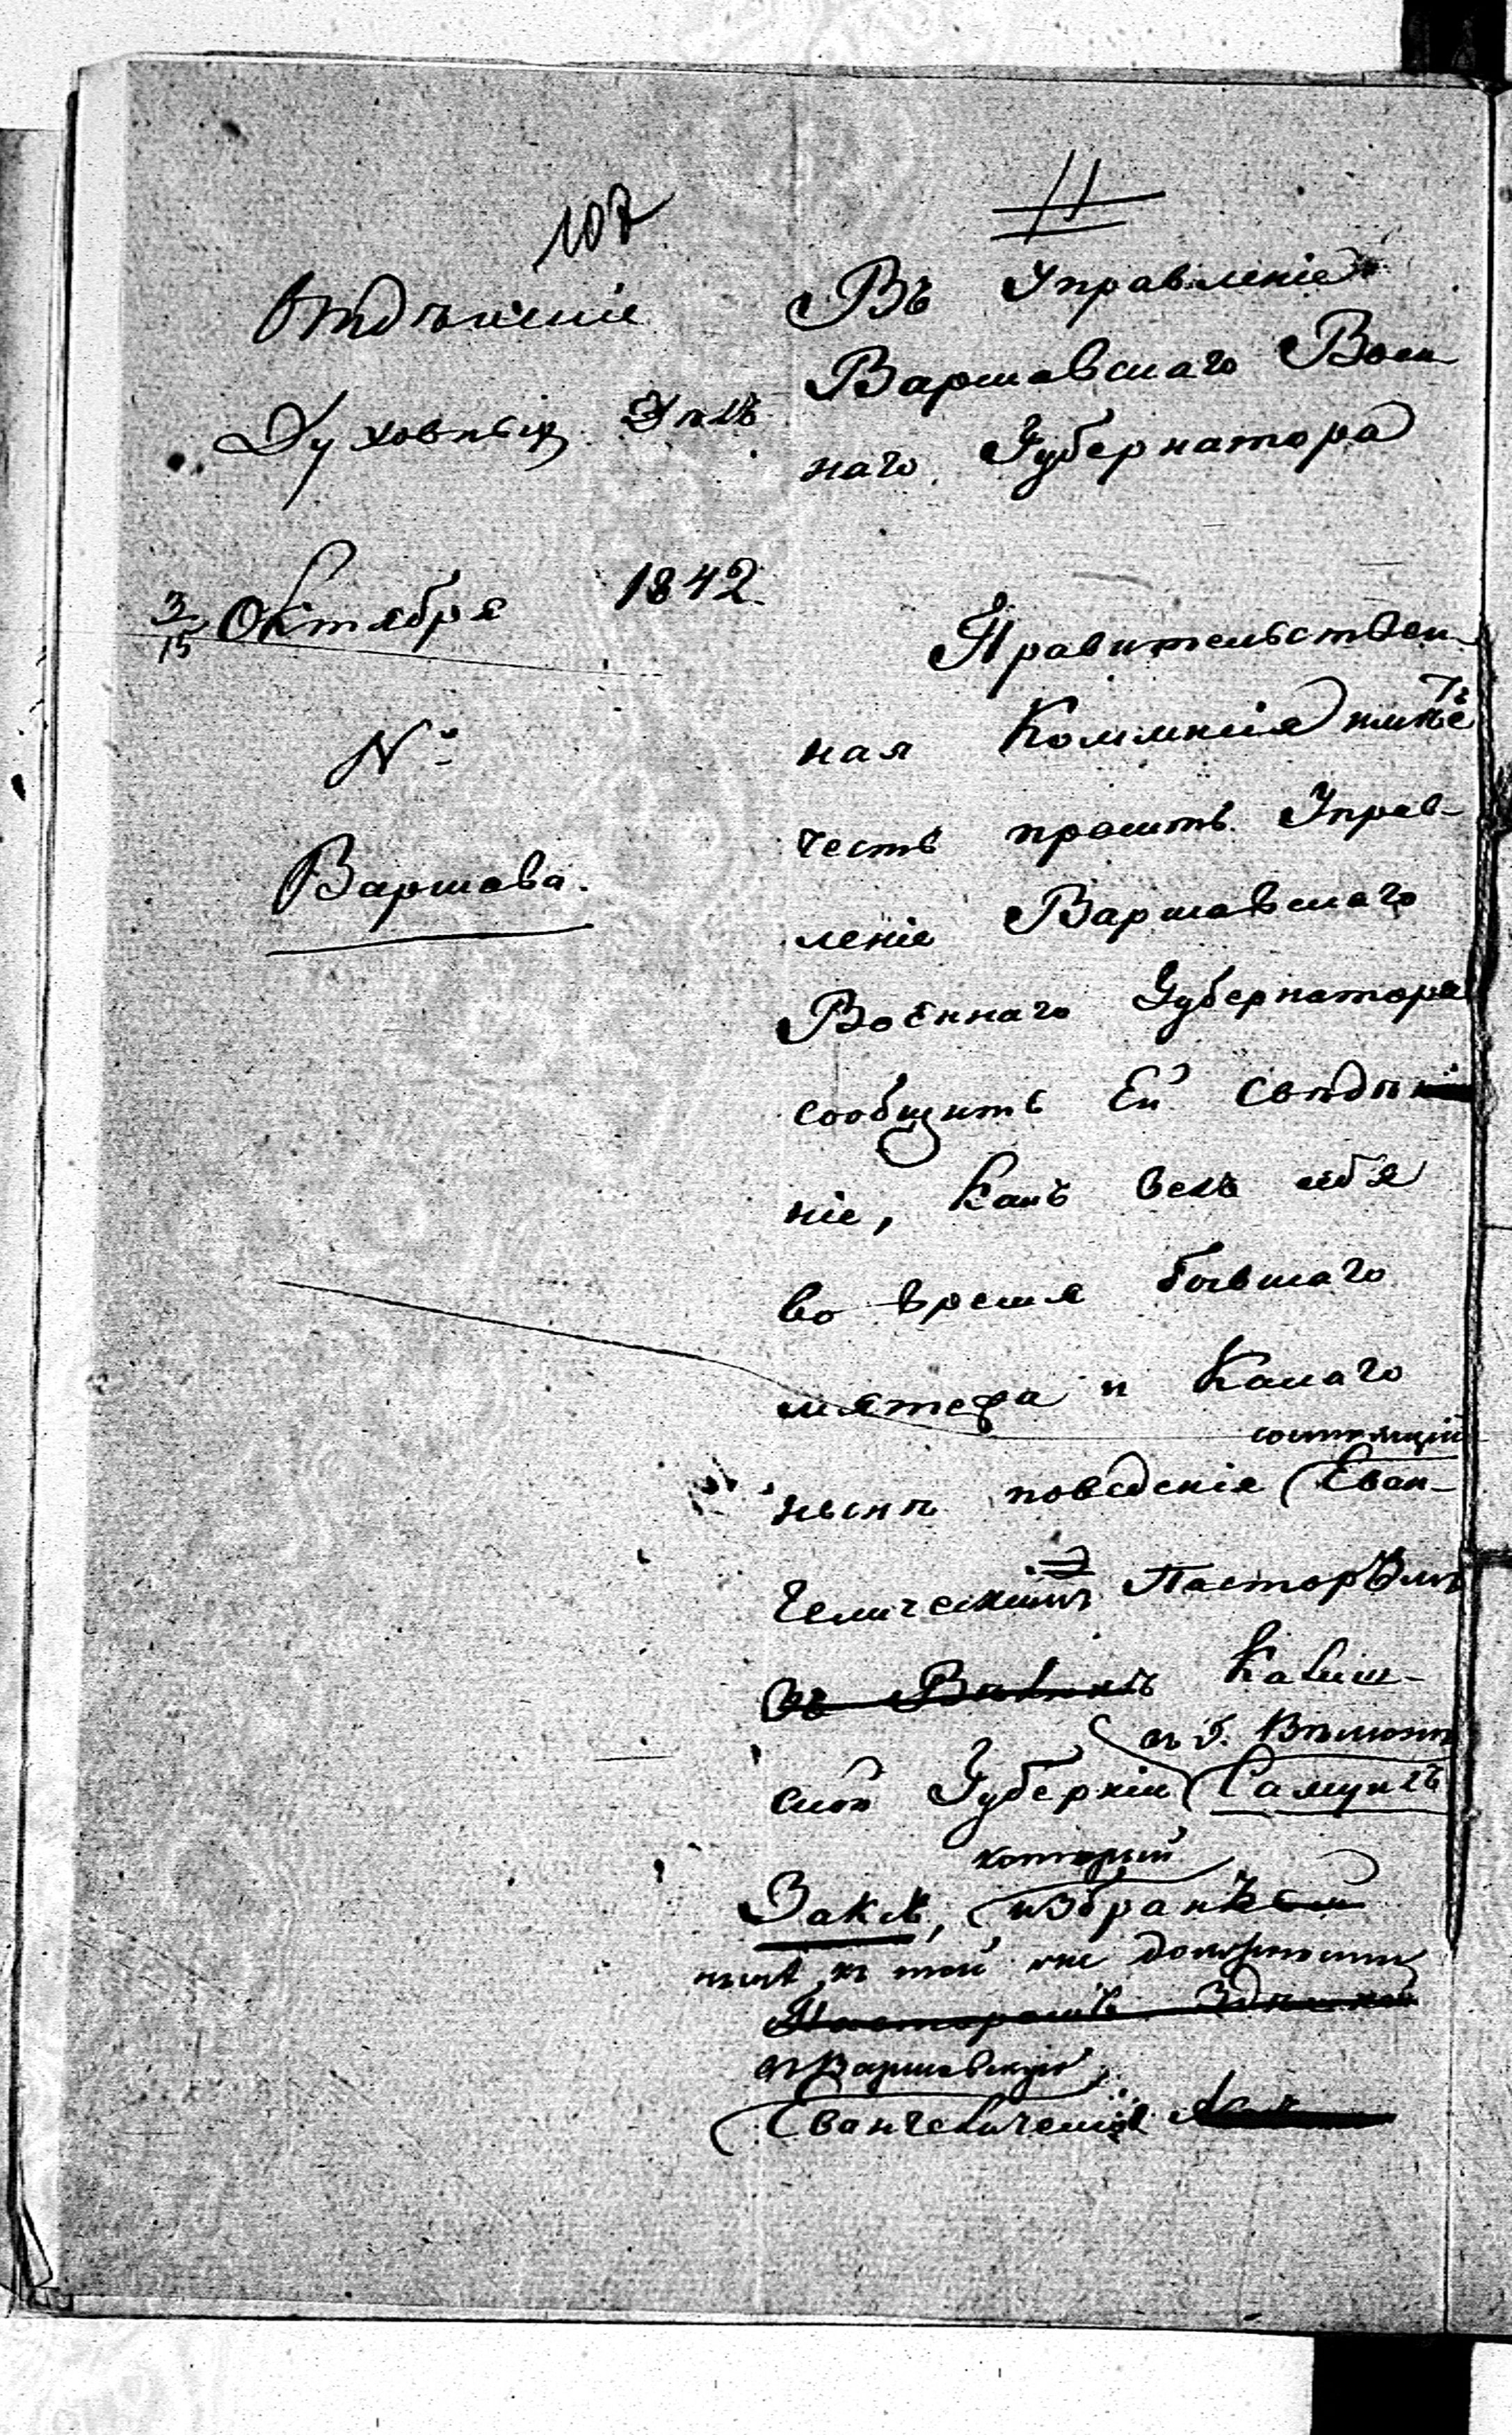 107
11
Отдѣленіе
Духовныхъ Дѣлъ
3/15 Октября 1842
№
Варшава.
Въ Управленіе
Варшавскаго Воен
наго Губернатора
Правительствен-
ная Коммисія имѣетъ
честь просить Управ-
леніе Варшавскаго
Военнаго Губернатора
сообщить Ей свѣдѣ
ніе, какъ велъ себя
во время бывшаго
мятежа и какаго
состоящій
нынѣ поведенія Еван-
гелическимъ Пасторомъ
въ Велюнѣ Калиш-
въ г. Велюнѣ
ской Губерніи Самуилъ
который
Заксъ, избранъ
нынѣ къ той же должности
Пасторомъ здѣшней
въ Варшавскую
Евангелическ